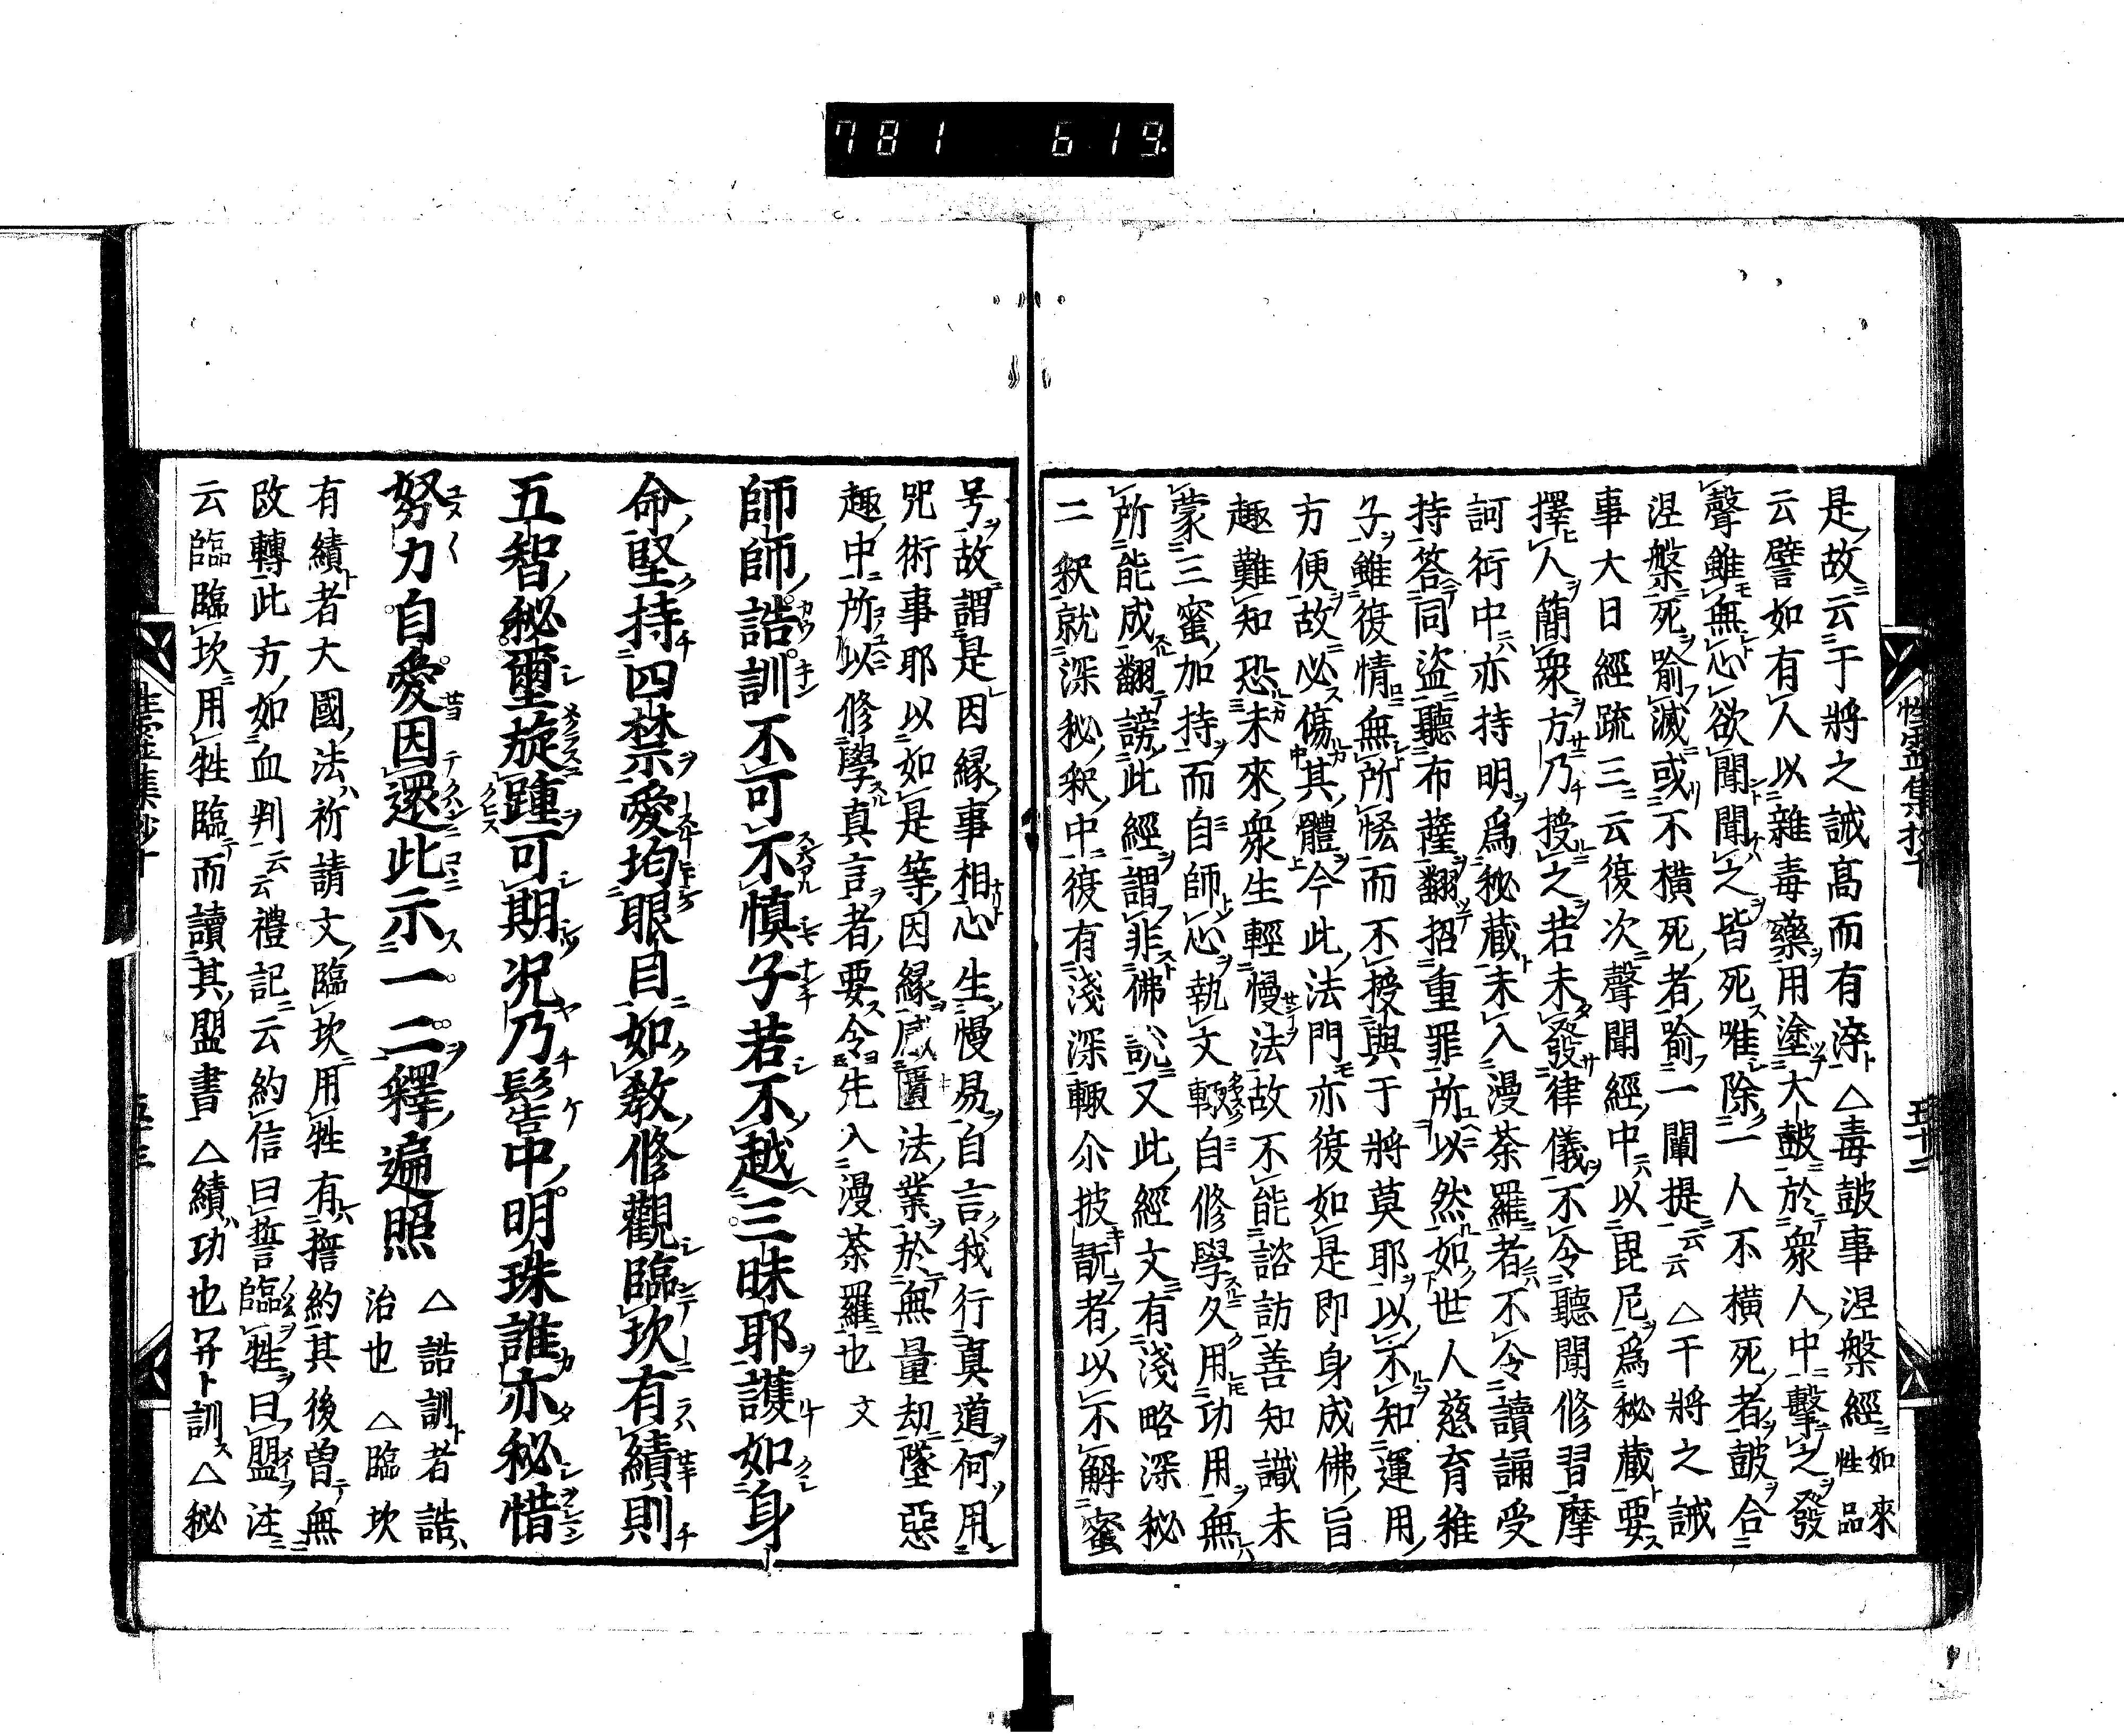 781 619
是故云干將之誡高而有淬△毒皷事涅槃經如來性品
云譬如有人以雜毒藥用塗大皷於衆人中擊之發
聲雖無心欲聞聞之皆死唯除一人不橫死者皷合
涅槃死喻滅或不橫死者喻一闡提云云△干將之誡
事大日經疏三云復次聲聞經中以毘尼爲秘藏要
擇人簡衆方乃授之若未發律儀不令聽聞修習摩
訶衍中亦持明爲秘藏未入漫荼羅者不令讀誦受
持答同盜聽布薩翻招重罪所以然如世人慈育稚
子雖復情無所悋而不授與干將莫耶以不知運用
方便故必傷其體今此法門亦復如是即身成佛旨
趣難知恐未來衆生輕慢法故不能諮訪善知識未
蒙三蜜加持而自師心執文輙自修學久用功用無
所能成翻謗此經謂非佛說又此經文有淺略深秘
二釈就深秘釈中復有淺深輙尒披翫者以不解蜜
号故謂是因緣事相心生慢易自言我行真道何用
咒術事耶以如是等因緣感匱法業於無量劫墜惡
趣中所以修學真言者要令先入漫荼羅也文
師師誥訓不可不慎子若不越三昧耶護如身
命堅持四禁愛均眼目如教修觀臨坎有績則
五智秘璽旋踵可期況乃髻中明珠誰亦秘惜
努力自愛因還此示一二釋遍照
△誥訓者誥治也△臨坎
有績者大國法祈請文臨坎用牲有誓約其後曾無
改轉此方如血判云云禮記云約信曰誓臨牲曰盟注
云臨臨坎用牲臨而讀其盟書△績功也并ト訓ス△秘